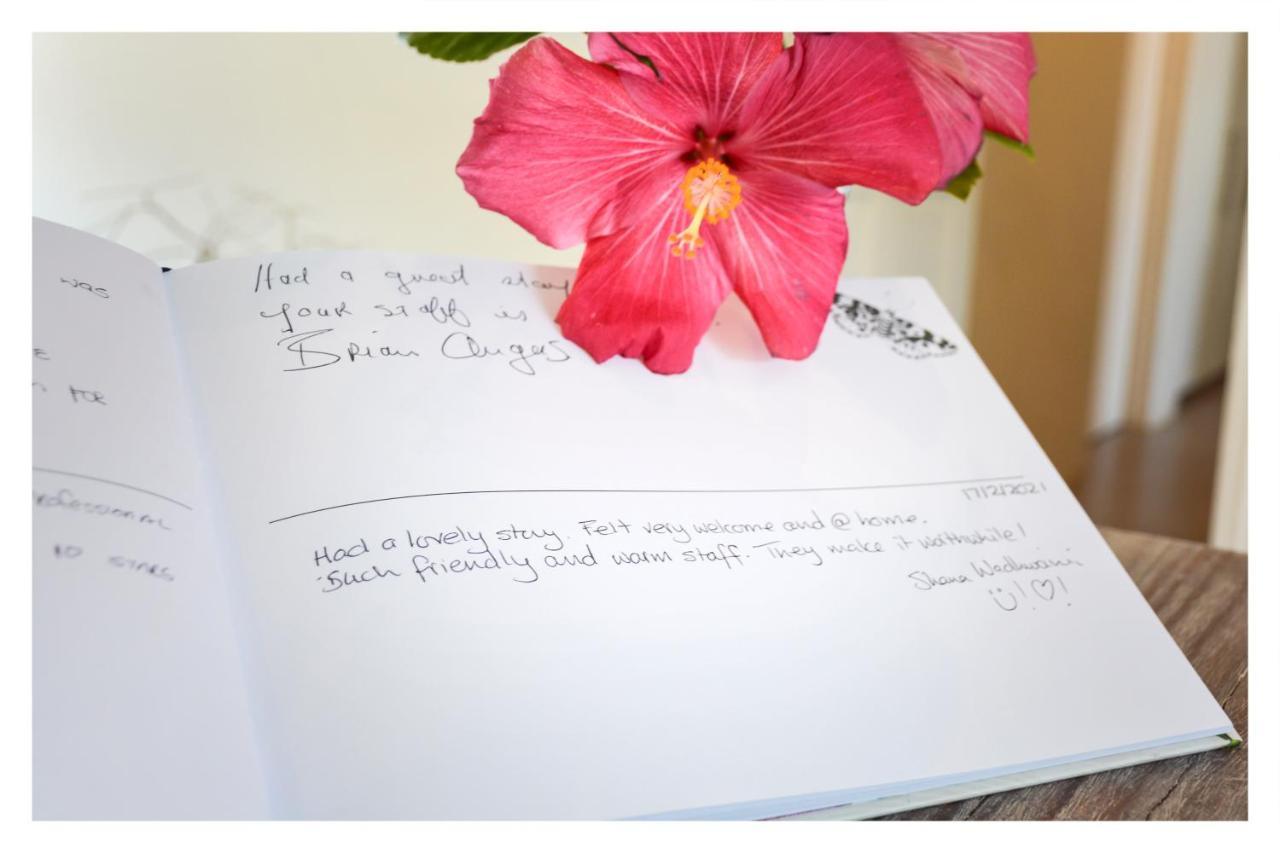 was
TOE
Professional
10 STARS
Had a great stay
your staff is
Brian Angas
17/2/2021
Had a lovely stay. Felt very welcome and @ home.
Such friendly and warm staff. They make it worthwhile!
Shana Wadhwani